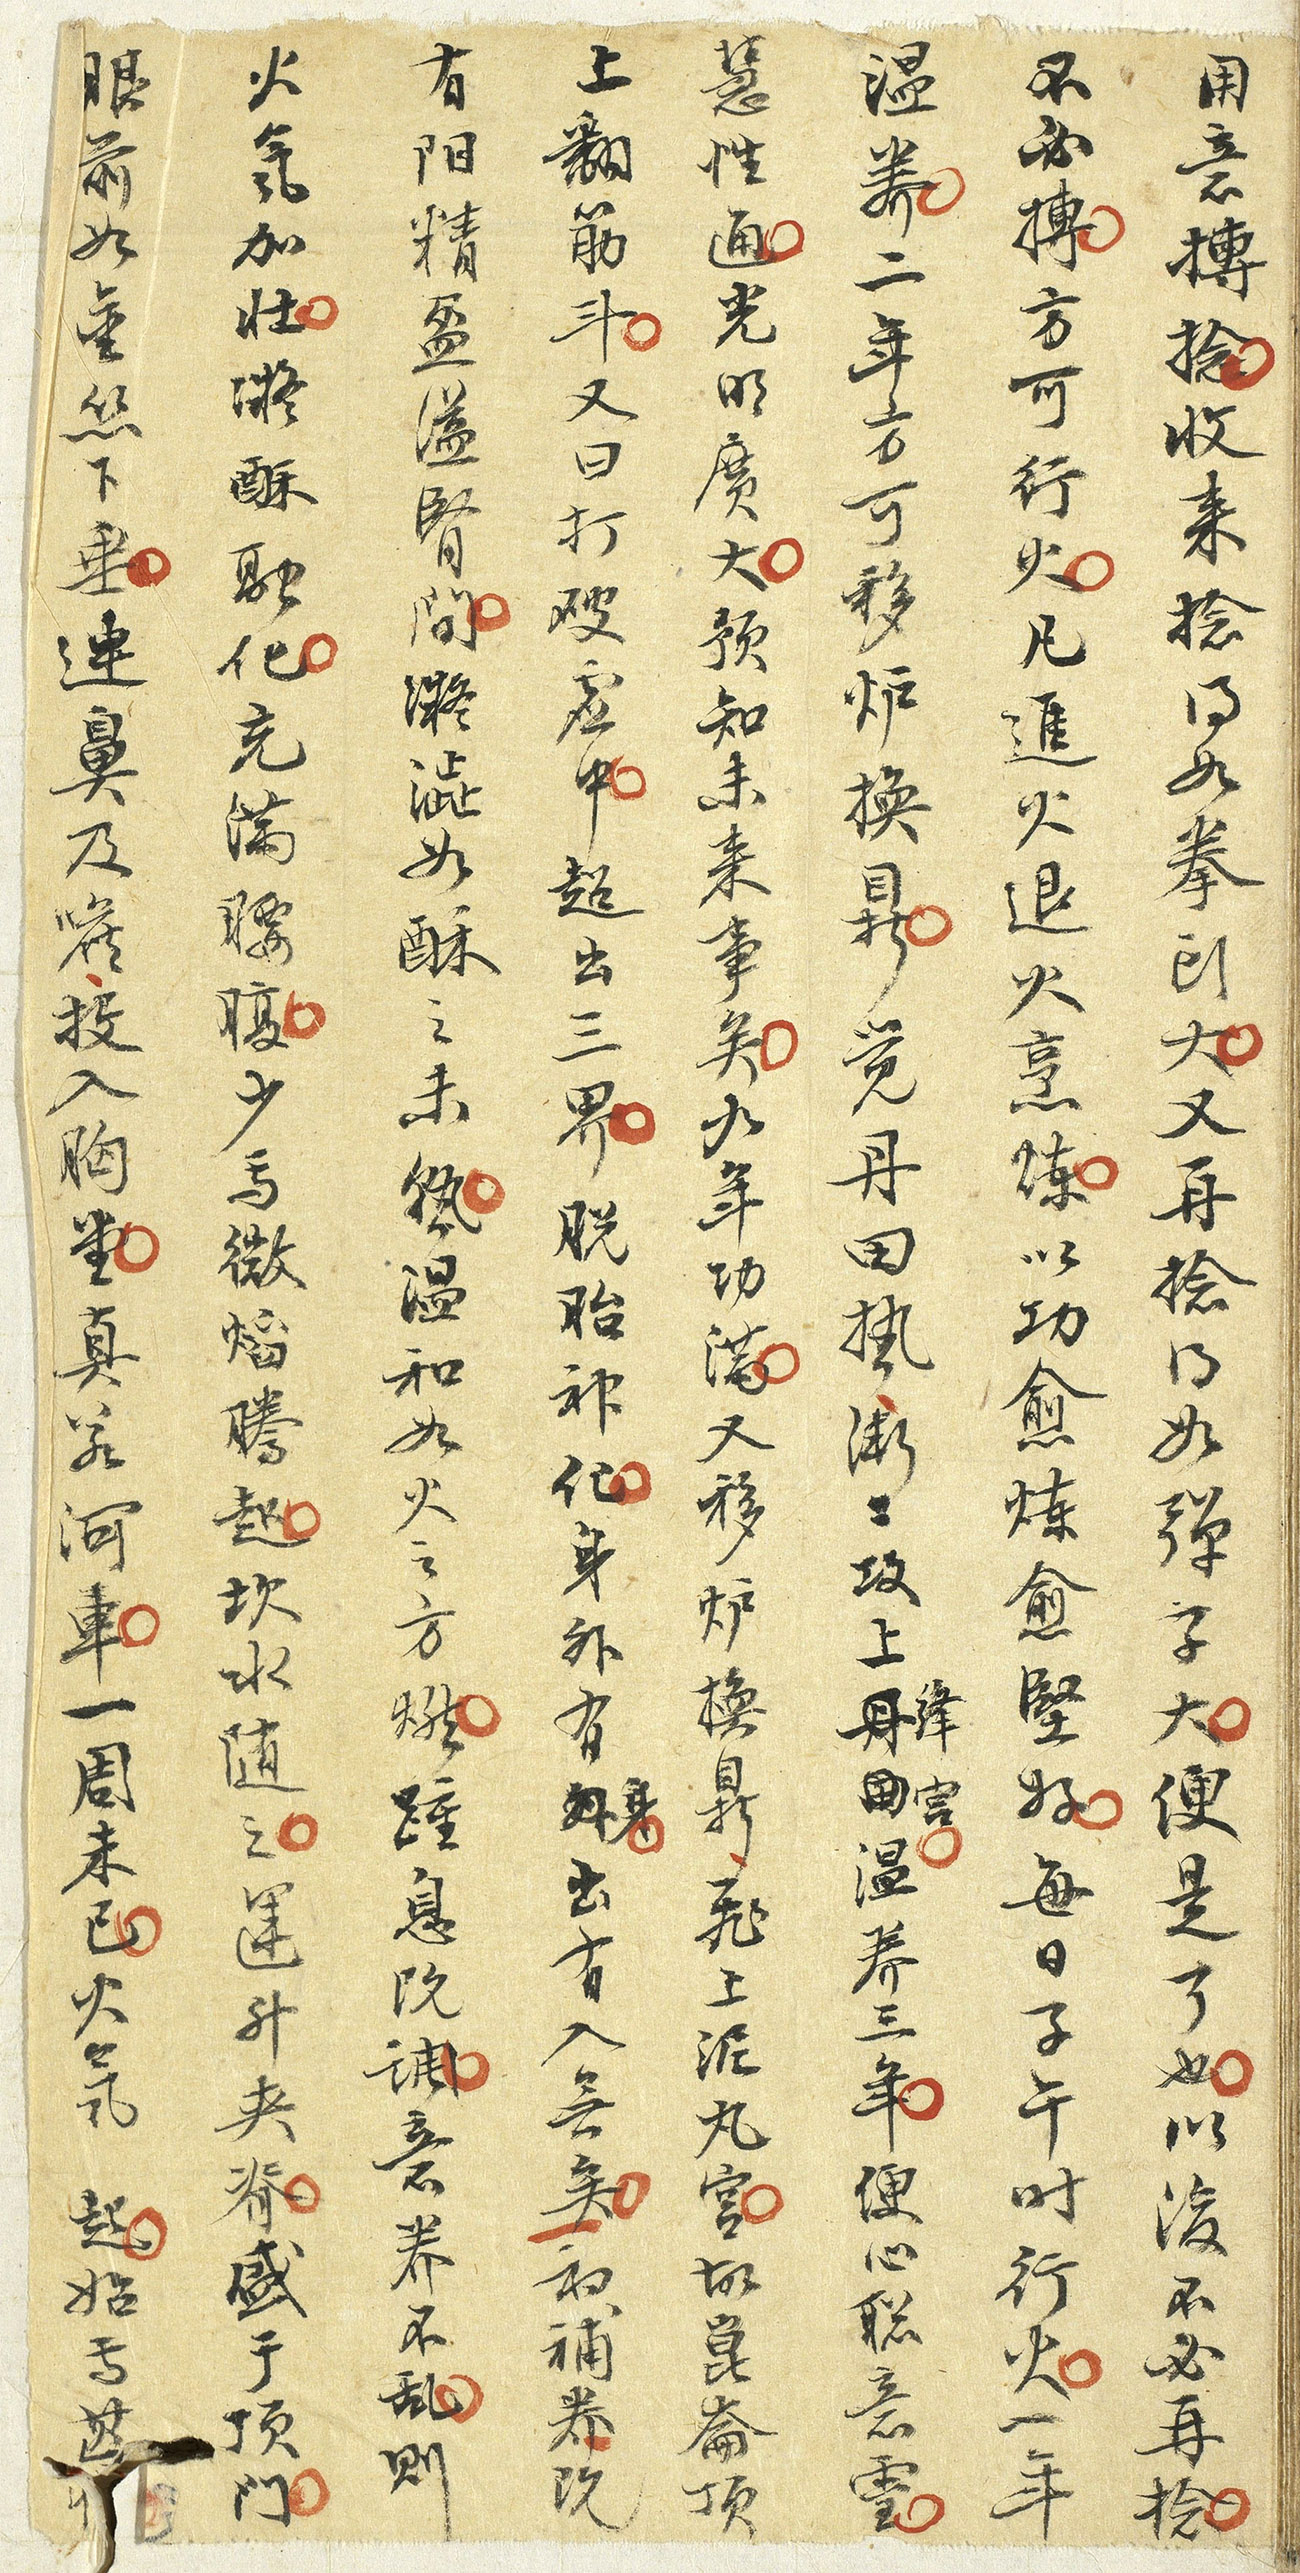 用意摶捻收来捻得如拳头大又再捻得如弹子大便是了也以後不必再捻
不必摶方可行火凡進火退火烹煉以功愈炼愈堅好每日子午时行火一年
温养二年方可移炉换鼎觉丹田热漸〻攻上絳宮温养三年便心聪意灵
慧性通光明廣大预知未来事矣九年功满又移炉换鼎飛上泥丸宫故崑崙顶
上翻筋斗又曰打破虚中超出三界脱胎神化身外有身出有入无矣初補养既
有阳精盈溢腎間凝澁如酥之未熟温和如火之方燃踵息既调意养不乱则
火氣加壮凝酥融化充满腰腹少焉微焰腾起坎水随之運升夹脊盛于顶門
眼前如金丝下垂連鼻及嘴投入胸堂真若河車一周未已火氣起始焉